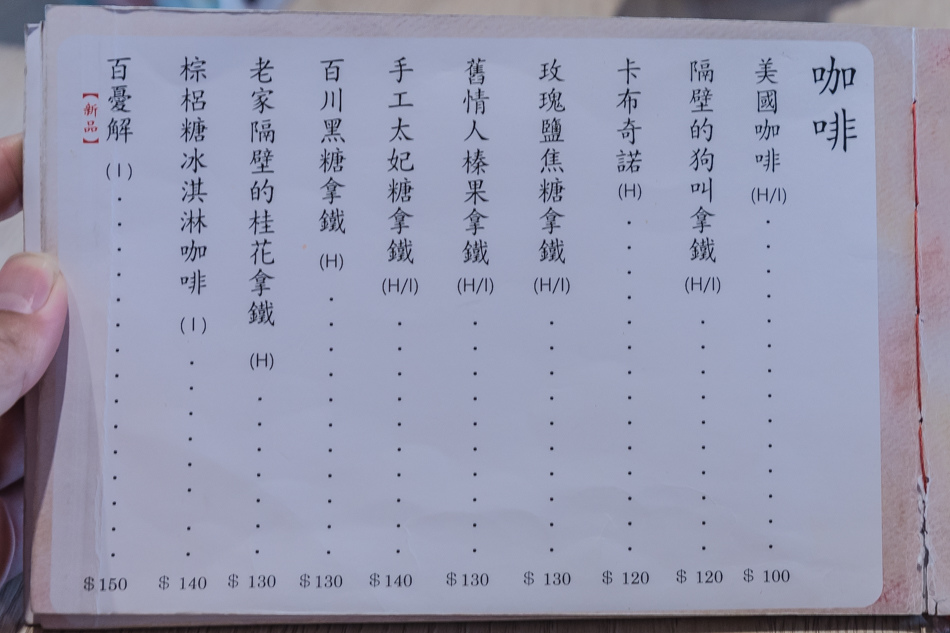 咖啡
美國咖啡(H/I)..........$100
隔壁的狗叫拿鐵(H/I)..........$120
卡布奇諾(H)..............$120
玫瑰鹽焦糖拿鐵(H/I)..........$130
舊情人榛果拿鐵(H/I)..........$130
手工太妃糖拿鐵(H/I)..........$140
百川黑糖拿鐵(H)...........$130
老家隔壁的桂花拿鐵(H).......$130
棕梠糖冰淇淋咖啡(I)........$140
百憂解(I)...............$150
【新品】